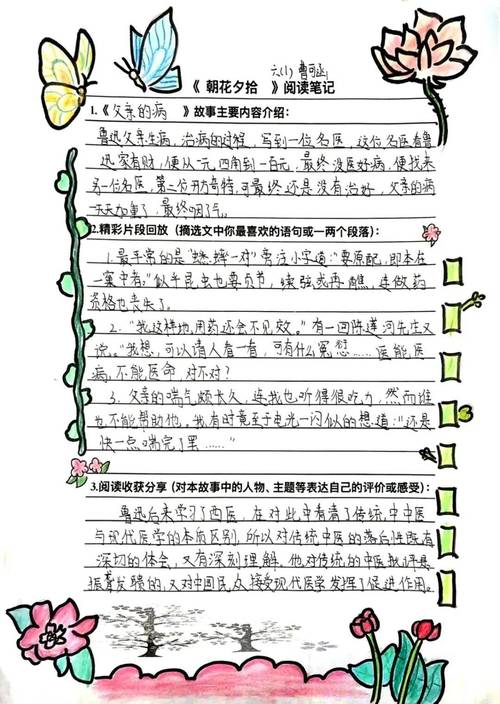 六(1) 曹可涵
《 朝花夕拾 》阅读笔记
1.《父亲的病 》故事主要内容介绍：
鲁迅父亲生病,治病的过程,写到一位名医,这位名医看鲁
迅家有财,便从一元四角到一百元,最终没医好病,便找来
另一位名医,第二位开方奇特,可最终还是没有治好,父亲的病
一天天加重了,最终咽了气。
2.精彩片段回放（摘选文中你最喜欢的语句或一两个段落）：
1.最平常的是"蟋蟀一对"旁注小字道:"要原配,即本在
一窠中者。"似乎昆虫也要贞节,续弦或再醮,连做药
资格也丧失了。
2."我这样地用药还会不见效。"有一回陈莲河先生又
说。"我想,可以请人看一看,可有什么冤愆……医能医
病,不能医命,对不对?
3.父亲的喘气颇长久,连我也听得很吃力,然而谁
也不能帮助他,我有时竟至于电光一闪似的想道:"还是
快一点喘完了罢……"
3.阅读收获分享（对本故事中的人物、主题等表达自己的评价或感受）：
鲁迅后来学习了西医,在对此中看清了传统,中中医
与现代医学的本质区别,所以对传统中医的落后性既有
深切的体会,又有深刻理解,他对传统的中医批评是
振聋发聩的,又对中国民众接受现代医学发挥了促进作用。